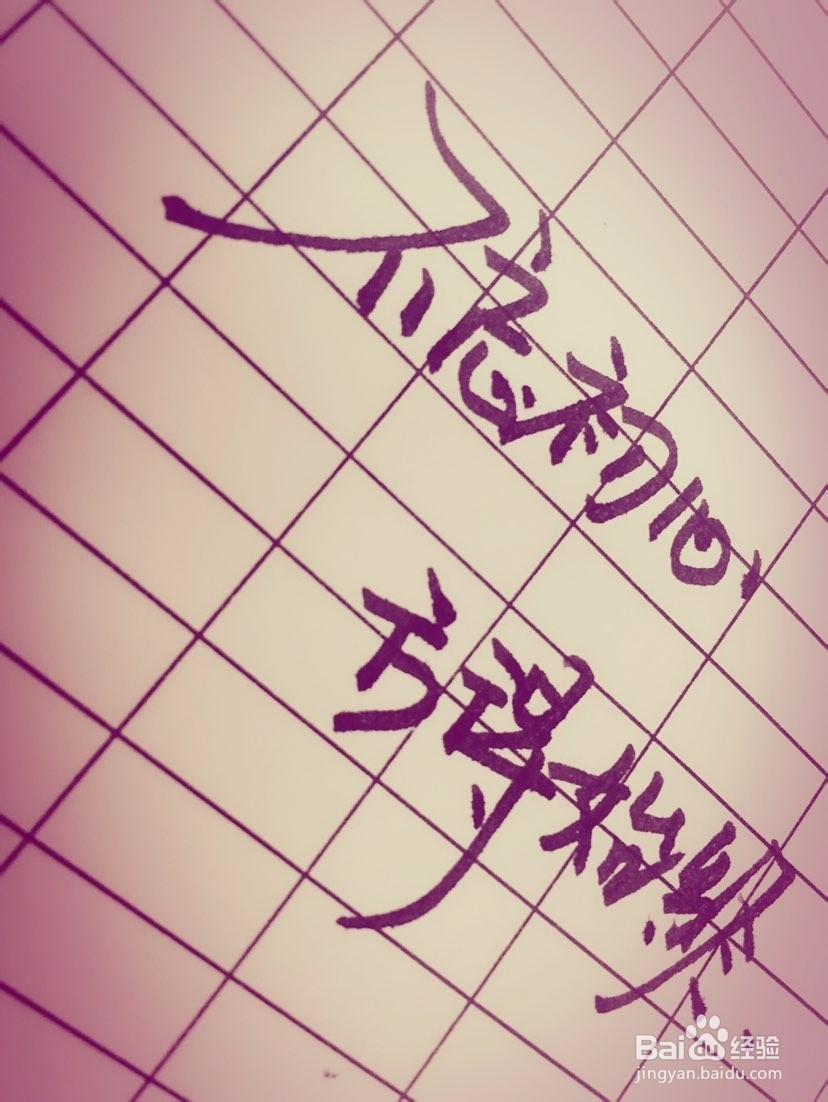 不忘初心
方得始终
Bai 经验
jingyan.baidu.com